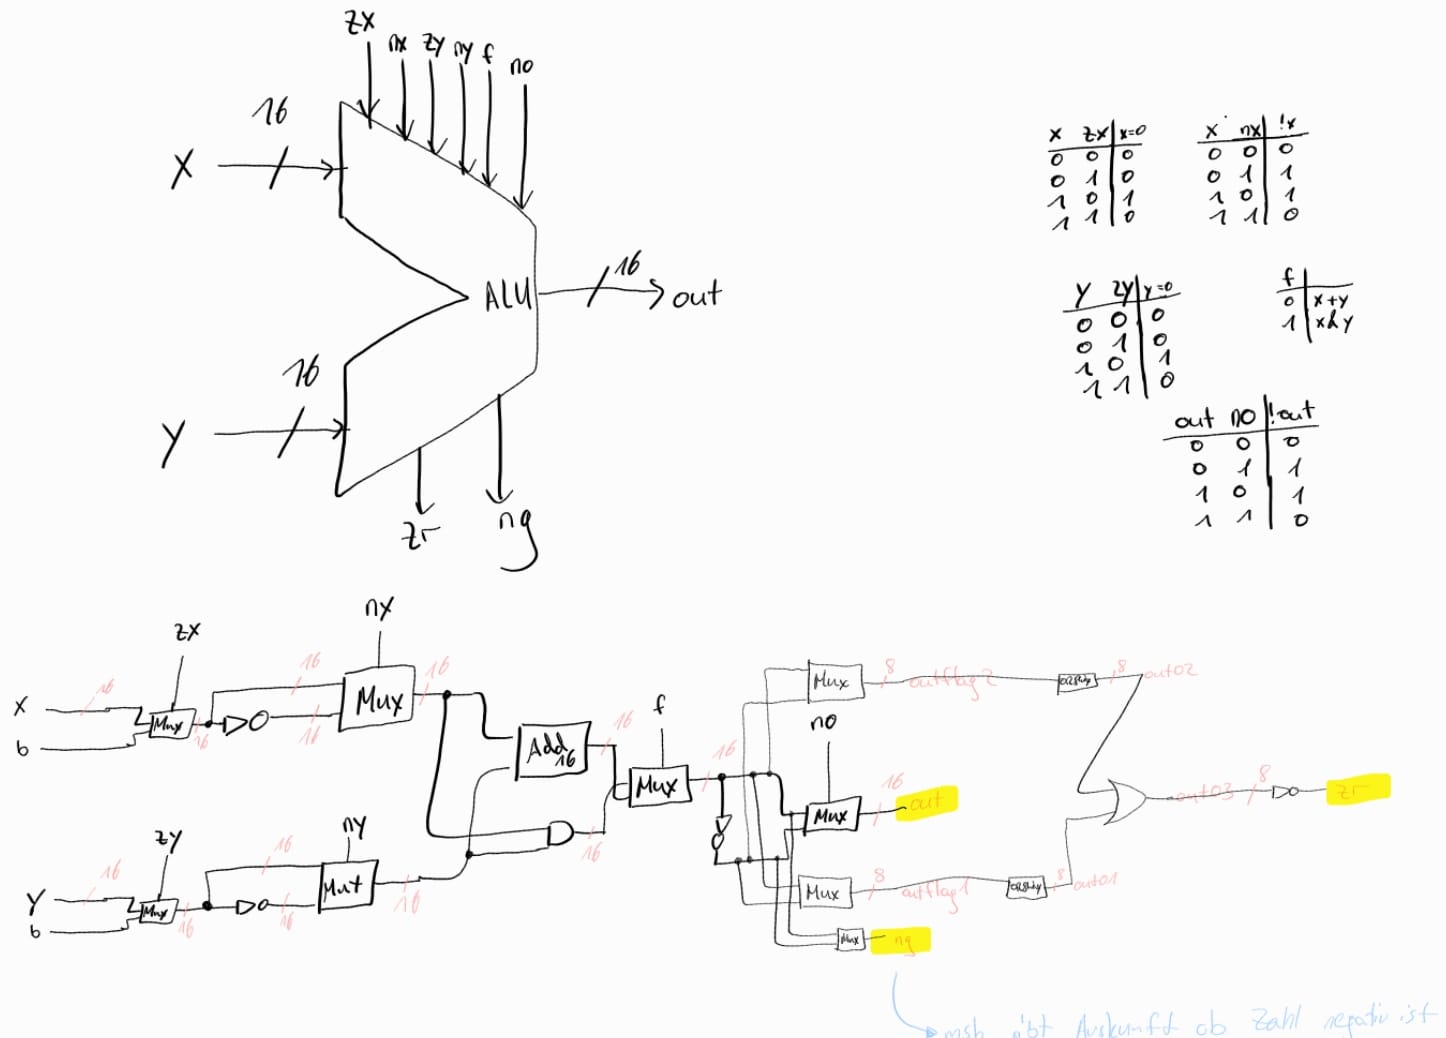 zx nx zy ny f no
16
X
ALU
16
out
16
y
zr ng
x zx x=0
0 0 0
0 1 0
1 0 1
1 1 0
x nx !x
0 0 0
0 1 1
1 0 1
1 1 0
y zy y=0
0 0 0
0 1 0
1 0 1
1 1 0
f
0 x+y
1 x&y
out no !out
0 0 0
0 1 1
1 0 1
1 1 0
zx
nx
X 16
Mux
16
16
16
Mux
16
b
Add16
16
f
Mux
16
zy
ny
Y 16
Mux
16
16
16
Mux
16
b
16
Mux
8
outflag2
8
out02
no
Mux
16
out
out03
8
zr
Mux
8
outflag1
8
out01
Mux
ng
msb gibt Auskunft ob Zahl negativ ist